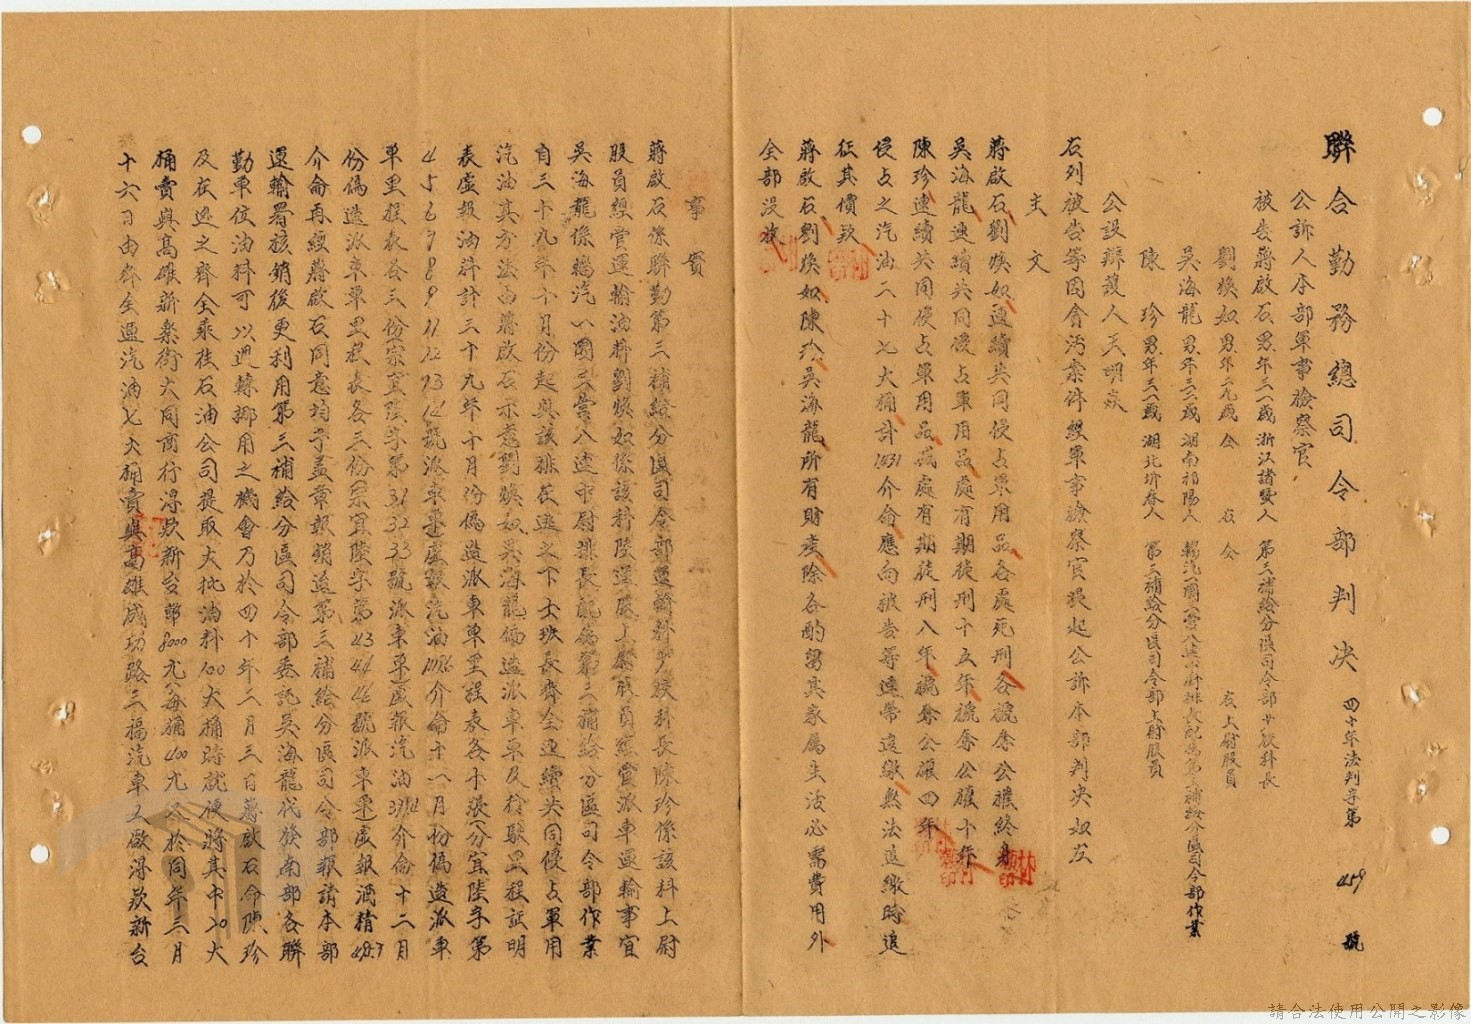 聯合勤務總司令部判決 四十年法判字第 459 號
公訴人本部軍事檢察官
被告蔣啟石男年三八歲浙江諸暨人 第三補給分區司令部少校科長
劉煥如男年二九歲 仝 右 仝 右上尉股員
吳海龍男年三三歲湖南祁陽人 輜汽八團一營八連中尉排長配屬第三補給分區司令部作業
陳 珍男年三八歲湖北圻春人 第三補給分區司令部上尉股員
公設辯護人王明炎
右列被告等因貪污案件經軍事檢察官提起公訴本部判決如左
主 文
蔣啟石劉煥如連續共同侵占軍用品各處死刑各褫奪公權終身
吳海龍連續共同侵占軍用品處有期徒刑十五年褫奪公權十年
陳珍連續共同侵占軍用品減處有期徒刑八年褫奪公權四年
侵占之汽油二十七大桶計1431介侖應向被告等連帶追繳無法追繳時追
征其價款
蔣啟石劉煥如陳珍吳海龍所有財產除各酌留其家屬生活必需費用外
全部沒收
事 實
蔣啟石係聯勤第三補給分區司令部運輸科少校科長陳珍係該科上尉
股員經管運輸油料劉煥如係該科陸運股上尉股員經管派車運輸事宜
吳海龍係輜汽八團三營八連中尉排長配屬第三補給分區司令部作業
自三十九年十月份起與該排在逃之下士班長齊全連續共同侵占軍用
汽油其方法由蔣啟石示意劉煥如吳海龍偽造派車單及行駛里程証明
表虛報油料計三十九年十月份偽造派車單里程表各十張分宜陸字第
4 5 6 7 8 9 11 12 13 14號派車單虛報汽油1086介侖十一月份偽造派車
單里程表各三份宗宜陸字第31 32 33號派車單虛報汽油 介侖十二月
份偽造派車單里程表各三份宗宜陸字第43 44 46號派車單虛報酒精
介侖再經蔣啟石同意均予蓋章報銷送第三補給分區司令部報請本部
運輸署核銷後更利用第三補給分區司令部委託吳海龍代發南部各聯
勤單位油料可以週轉挪用之機會乃於四十年二月三日蔣啟石命陳珍
及在逃之齊全乘往石油公司提取大批油料100大桶時就便將其中20大
桶賣與高雄新樂街大同商行得款新台幣8000元每桶400元又於同年三月
十六日由齊全過汽油七大桶賣與高雄成功路三福汽車工廠得款新台
請合法使用公開之影像